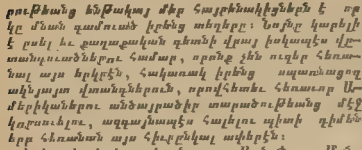 րութեանց ենթակայ մեր հայրենակիցներն է որ
կը մնան զամուած իրենց տեղերը։ Նոյնը կարելի
է ըսել եւ քաղաքական գետնի վրայ իսկապէս վը-
տանգուածներու համար, որոնք չեն ուզեր հեռա-
նալ այս երկրէն, հակառակ իրենց սպառնացող
ակնյայտ վտանգներուն, որովհետեւ հեռաւոր Ա-
մերիկաներու անծայրածիր տարածութեանց մէջ
կորսուելու, ազգայնապէս հալելու պիտի դիմեն
երբ հեռանան այս հիւրընկալ ափերէն։